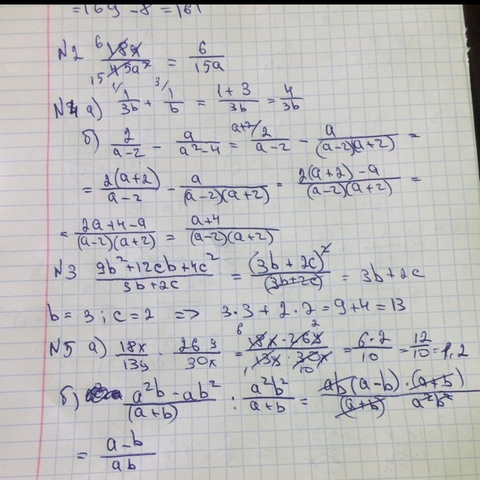 = 169 - 8 = 161
N2 6 18x / 15 45ax = 6 / 15a
N4 a) 1/ 1 / 3b + 3/ 1 / b = 1 + 3 / 3b = 4 / 3b
б) 2 / a-2 - a / a²-4 = a+2/ 2 / a-2 - a / (a-2)(a+2) =
= 2(a+2) / a-2 - a / (a-2)(a+2) = 2(a+2) - a / (a-2)(a+2) =
= 2a+4-a / (a-2)(a+2) = a+4 / (a-2)(a+2)
N3 9b²+12cb+4c² / 3b+2c = (3b+2c)² / (3b+2c) = 3b+2c
b = 3; c = 2 => 3·3 + 2·2 = 9+4 = 13
N5 a) 18x / 13y · 26y / 30x = 6 18x · 26x 2 / 1 13x · 30x 10 = 6·2 / 10 = 12 / 10 = 1,2
б) a²b - ab² / (a+b) : a²b² / a+b = ab(a-b)·(a+b) / (a+b) a²b² =
= a-b / ab